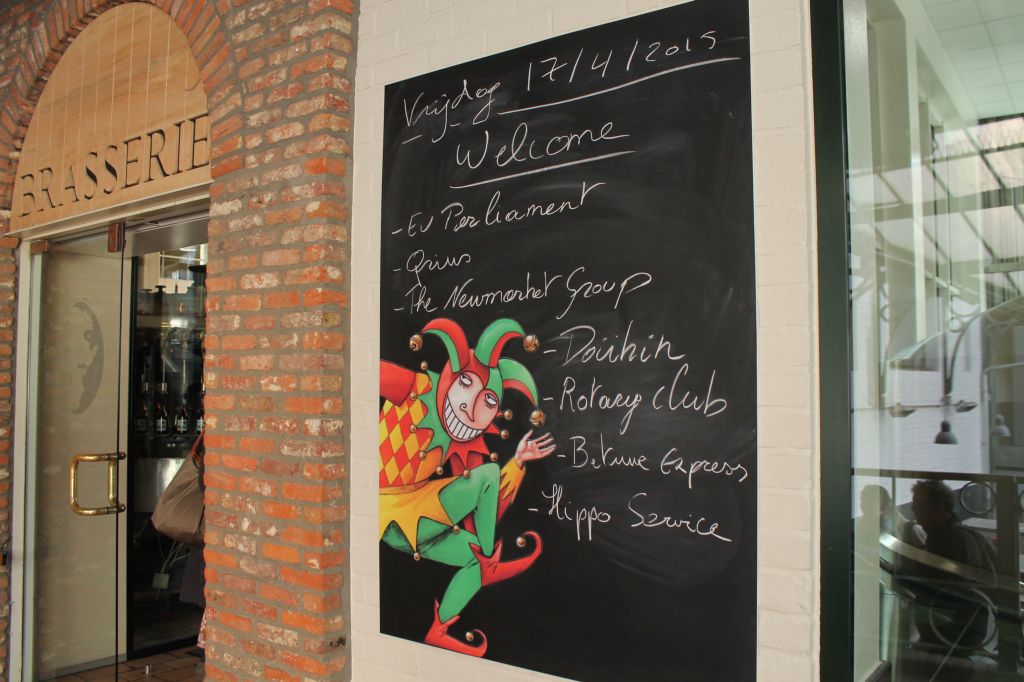 BRASSERIE
Vrijdag 17/4/2015
Welcome
- EU Parliament
- Qrius
- The Newmarket Group
- Rotary Club
- Express
- Hippo Service